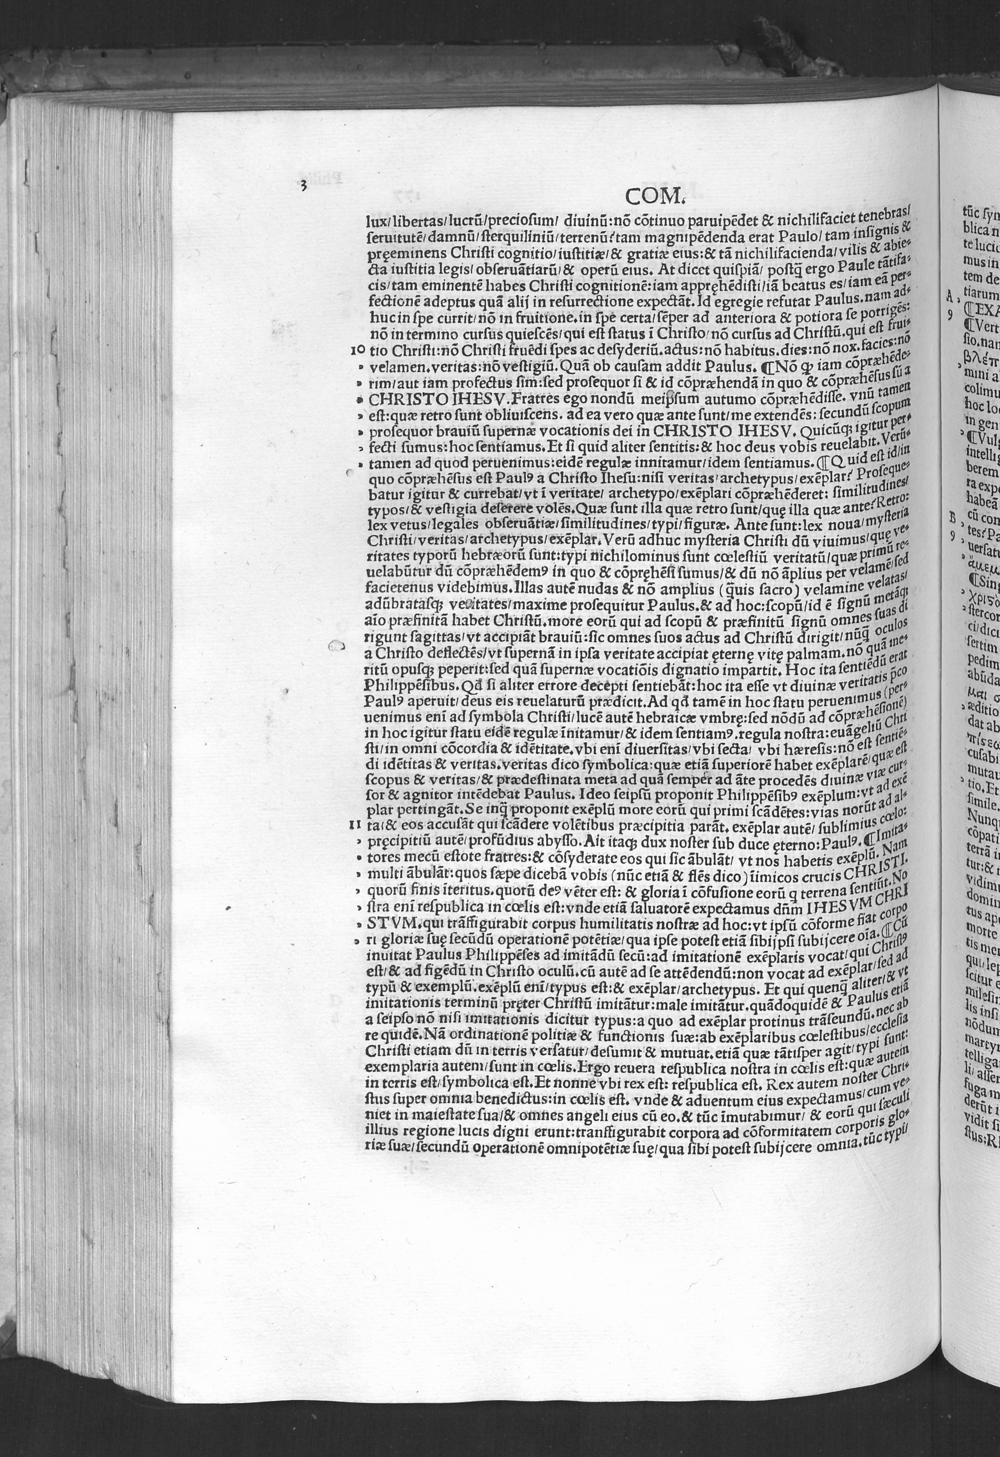 3
COM.
lux/libertas/lucrū/preciosum/ diuinū:nō cōtinuo paruipēdet & nichilifaciet tenebras/
seruitutē/damnū/sterquiliniū/terrenū?tam magnipēdenda erat Paulo/tam insignis &
pręeminens Christi cognitio/iustitiæ/& gratiæ eius:& tā nichilifacienda/vilis & abie-
cta iustitia legis/obseruātiarū/& operū eius. At dicet quispiā/ postq̄ ergo Paule tātifa-
cis/tam eminentē habes Christi cognitionē:iam appręhēdisti/iā beatus es/iam eā per-
fectionē adeptus quā alij in resurrectione expectāt. Id egregie refutat Paulus.nam ad-
huc in spe currit/nō in fruitione.in spe certa/sēper ad anteriora & potiora se porrigēs:
nō in termino cursus quiescēs/qui est status ī Christo/nō cursus ad Christū.qui est frui-
10 tio Christi:nō Christi fruēdi spes ac desyderiū.actus:nō habitus.dies:nō nox.facies:nō
velamen.veritas:nō vestigiū. Quā ob causam addit Paulus. ¶Nō ꝙ iam cōpræhēde-
rim/aut iam profectus sim:sed prosequor si & id cōpræhendā in quo & cōpræhēsus sū a
CHRISTO IHESV.Fratres ego nondū meipsum autumo cōpræhēdisse. vnū tamen
est:quæ retro sunt obliuiscens. ad ea vero quæ ante sunt/me extendēs: secundū scopum
prosequor brauiū supernæ vocationis dei in CHRISTO IHESV. Quicūqꝫ igitur per-
fecti sumus:hoc sentiamus.Et si quid aliter sentitis:& hoc deus vobis reuelabit. Verū-
tamen ad quod peruenimus:eidē regulæ innitamur/idem sentiamus. ¶Quid est id/in
quo cōpræhēsus est Paulꝰ a Christo Ihesu:nisi veritas/archetypus/exēplar? Proseque-
batur igitur & currebat/vt ī veritate/ archetypo/exēplari cōpræhēderet: similitudines/
typos/& vestigia deserere volēs.Quæ sunt illa quæ retro sunt/quę illa quæ ante?Retro:
lex vetus/legales obseruātiæ/similitudines/typi/figuræ. Ante sunt:lex noua/mysteria
Christi/veritas/archetypus/exēplar.Verū adhuc mysteria Christi dū viuimus/quę ve-
ritates typorū hebræorū sunt:typi nichilominus sunt cœlestiū veritatū/quæ primū re-
uelabūtur dū cōpræhēdemꝰ in quo & cōpręhēsi sumus/& dū nō āplius per velamē/sed
facietenus videbimus.Illas autē nudas & nō amplius (q̄uis sacro) velamine velatas/
adūbratasqꝫ veritates/maxime prosequitur Paulus.& ad hoc:scopū/id ē signū metāqꝫ
aīo præfinitā habet Christū.more eorū qui ad scopū & præfinitū signū omnes suas di
rigunt sagittas/vt accipiāt brauiū:sic omnes suos actus ad Christū dirigit/nūq̄ oculos
a Christo deflectēs/vt supernā in ipsa veritate accipiat ęternę vitę palmam.nō quā me-
ritū opusqꝫ peperit:sed quā supernæ vocatiōis dignatio impartit. Hoc ita sentiēdū erat
Philippēsibus.Qđ si aliter errore decēpti sentiebāt:hoc ita esse vt diuinæ veritatis p̄co
Paulꝰ aperuit/deus eis reuelaturū prædicit.Ad qđ tamē in hoc statu peruenimus (per-
uenimus enī ad symbola Christi/lucē autē hebraicæ vmbrę:sed nōdū ad cōpræhēsionē)
in hoc igitur statu eidē regulæ īnitamur/& idem sentiamꝰ.regula nostra:euāgeliū Chri
sti/in omni cōcordia & idētitate.vbi enī diuersitas/vbi secta/ vbi hæresis:nō est sentiē-
di idētitas & veritas.veritas dico symbolica:quæ etiā superiorē habet exēplarē/quæ est
scopus & veritas/& prædestinata meta ad quā semper ad āte procedēs diuinæ viæ cur-
sor & agnitor intēdebat Paulus. Ideo seipsū proponit Philippēsibꝰ exēplum:vt ad exē
plar pertingāt.Se inq̄ proponit exēplū more eorū qui primi scādētes:vias norūt ad al-
11 ta/& eos accusāt qui scādere volētibus præcipitia parāt. exēplar autē/ sublimius cœlo:
pręcipitiū autē/profūdius abysso.Ait itaqꝫ dux noster sub duce ęterno:Paulꝰ. ¶Imita-
tores mecū estote fratres:& cōsyderate eos qui sic ābulāt/ vt nos habetis exēplū. Nam
multi ābulāt:quos sæpe dicebā vobis (nūc etiā & flēs dico) īimicos crucis CHRISTI.
quorū finis īteritus.quorū deꝰ vēter est: & gloria ī cōfusione eorū q terrena sentiūt.No
stra enī respublica in cœlis est:vnde etiā saluatorē expectamus dn̄m IHESVM CHRI
STVM.qui trāsfigurabit corpus humilitatis nostræ ad hoc:vt ipsū cōforme fiat corpo
ri gloriæ suę secūdū operationē potētiæ/qua ipse potest etiā sibijpsi subijcere oīa. ¶Cū
inuitat Paulus Philippēses ad imitādū secū:ad imitationē exēplaris vocat/qui Christꝰ
est/& ad figēdū in Christo oculū.cū autē ad se attēdendū:non vocat ad exēplar/sed ad
typū & exemplū.exēplū enī/typus est:& exēplar/archetypus. Et qui quenq̄ aliter/& vt
imitationis terminū pręter Christū imitātur:male imitātur.quādoquidē & Paulus etiā
a seipso nō nisi imitationis dicitur typus:a quo ad exēplar protinus trāseundū.nec ab
re quidē.Nā ordinationē politiæ & functionis suæ:ab exēplaribus cœlestibus/ecclesia
Christi etiam dū in terris versatur/desumit & mutuat.etiā quæ tātisper agit/typi sunt:
exemplaria autem/sunt in cœlis.Ergo reuera respublica nostra in cœlis est:quæ autem
in terris est/symbolica est.Et nonne vbi rex est: respublica est. Rex autem noster Chri-
stus super omnia benedictus:in cœlis est. vnde & aduentum eius expectamus/cum ve-
niet in maiestate sua/& omnes angeli eius cū eo.& tūc īmutabimur/ & eorū qui sæculi
illius regione lucis digni erunt:transfigurabit corpora ad cōformitatem corporis glo-
riæ suæ/secundū operationē omnipotētiæ suę/qua sibi potest subijcere omnia.tūc typi/